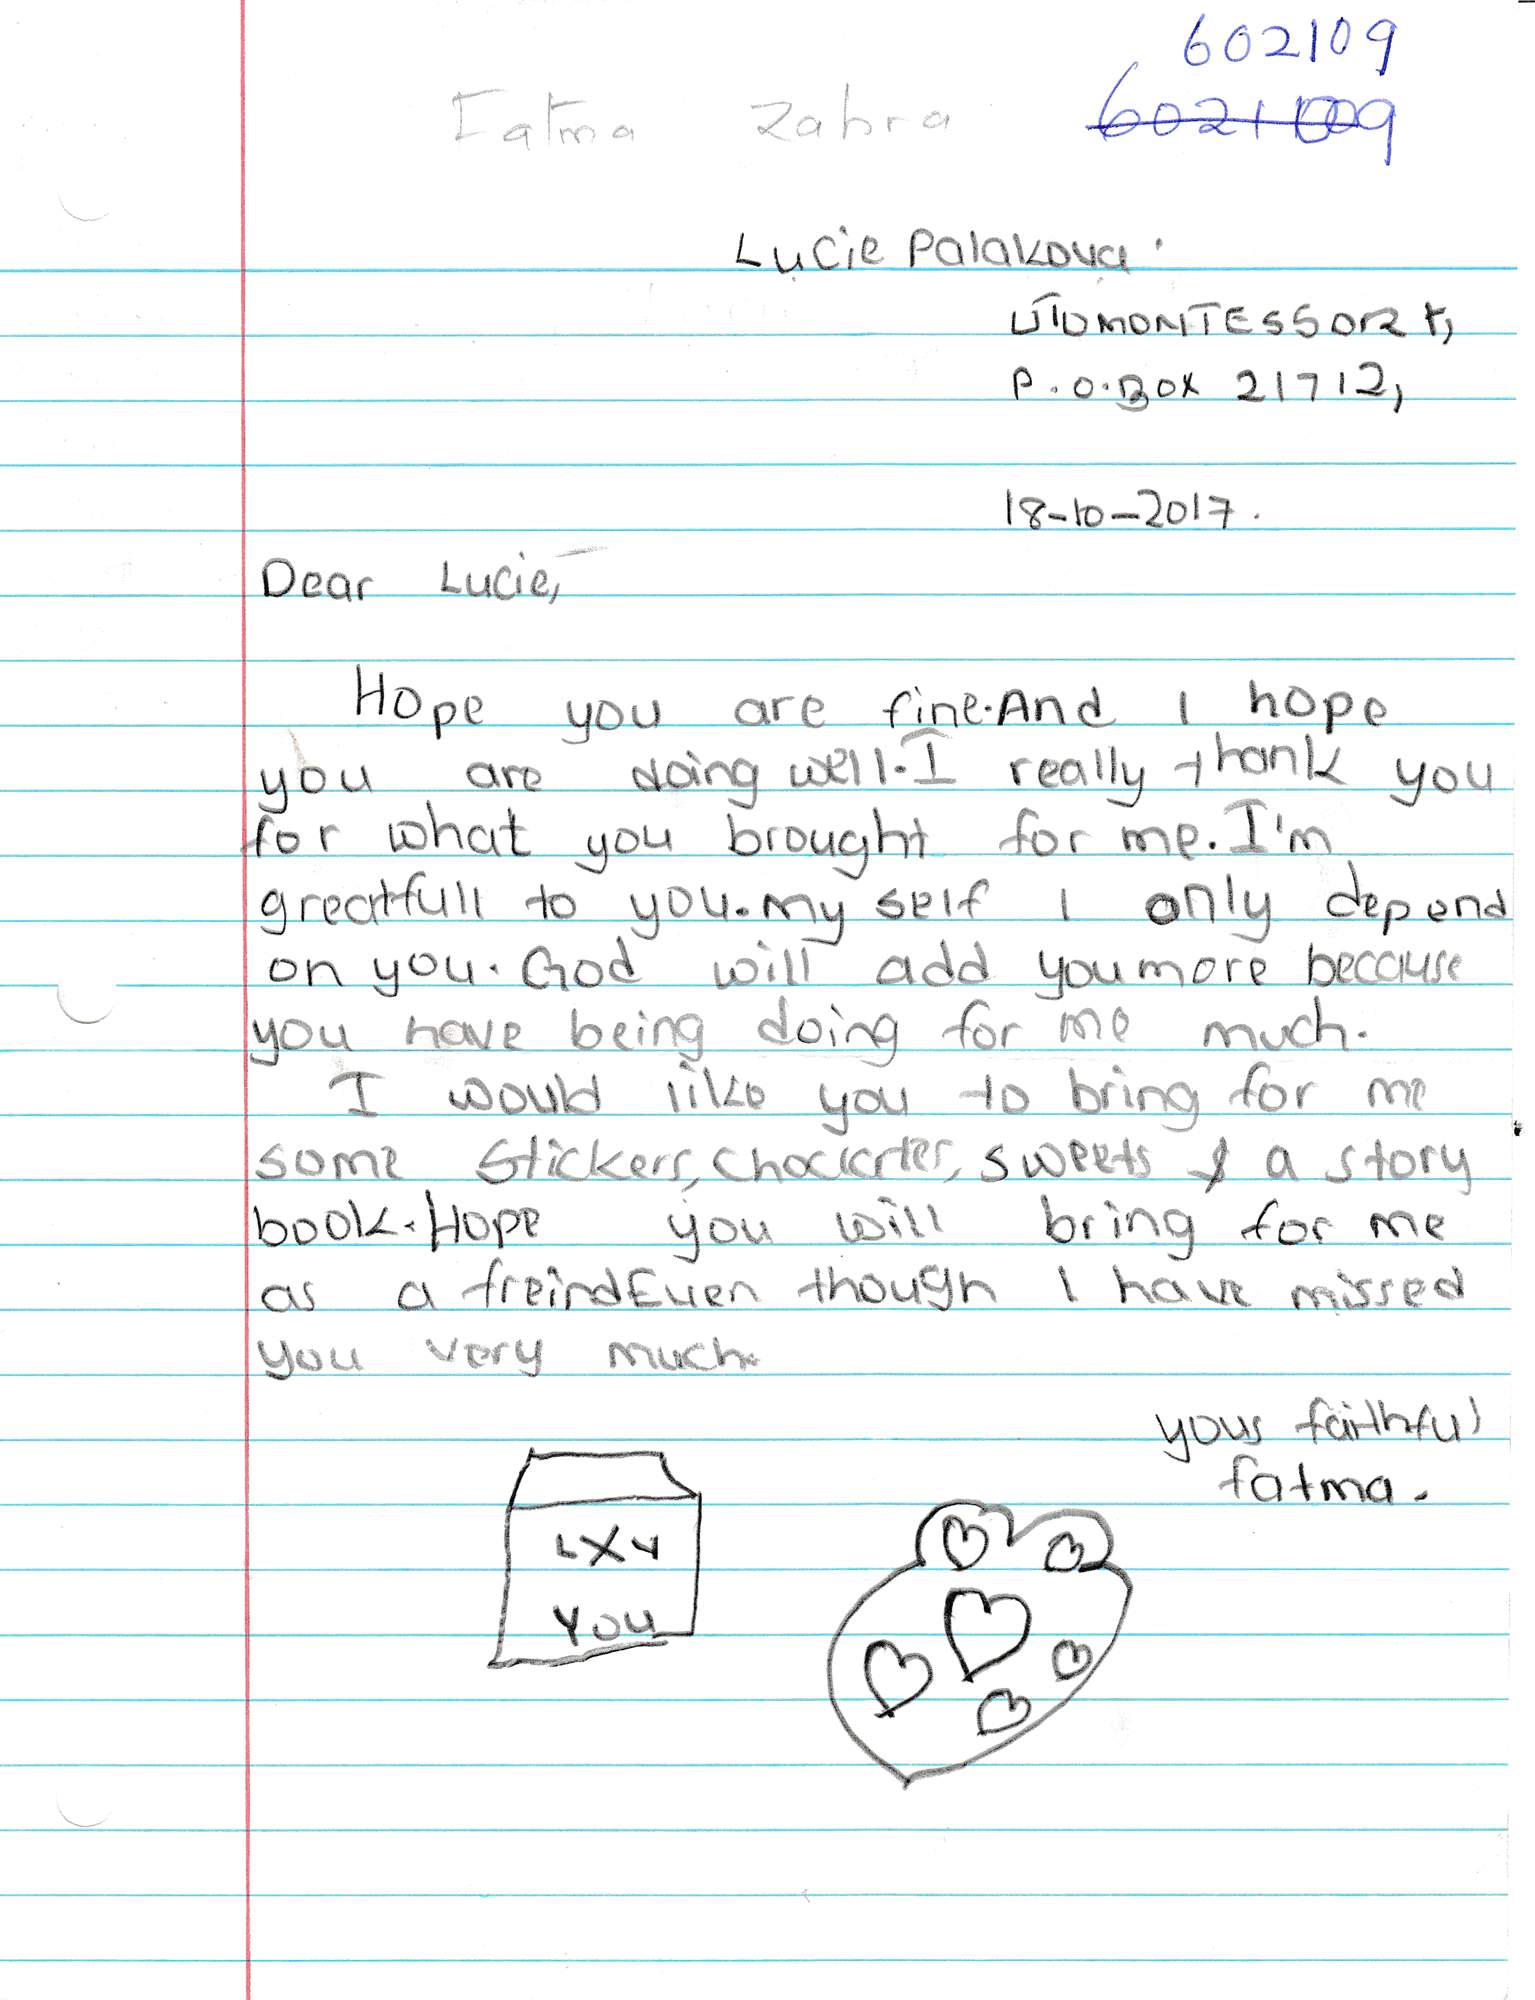 602109
Fatma Zahra
Lucie Palakova.
P.O.Box 21712,
18-10-2017.
Dear Lucie,
Hope you are fine. And I hope
you are doing well. I really thank you
for what you brought for me. I'm
greatfull to you. my self I only depend
on you. God will add you more because
you have being doing for me much.
I would like you to bring for me
some stickers, sweets & a story
book. Hope you will bring for me
as a freind Even though I have missed
you very much.
yous faithful
fatma.
You